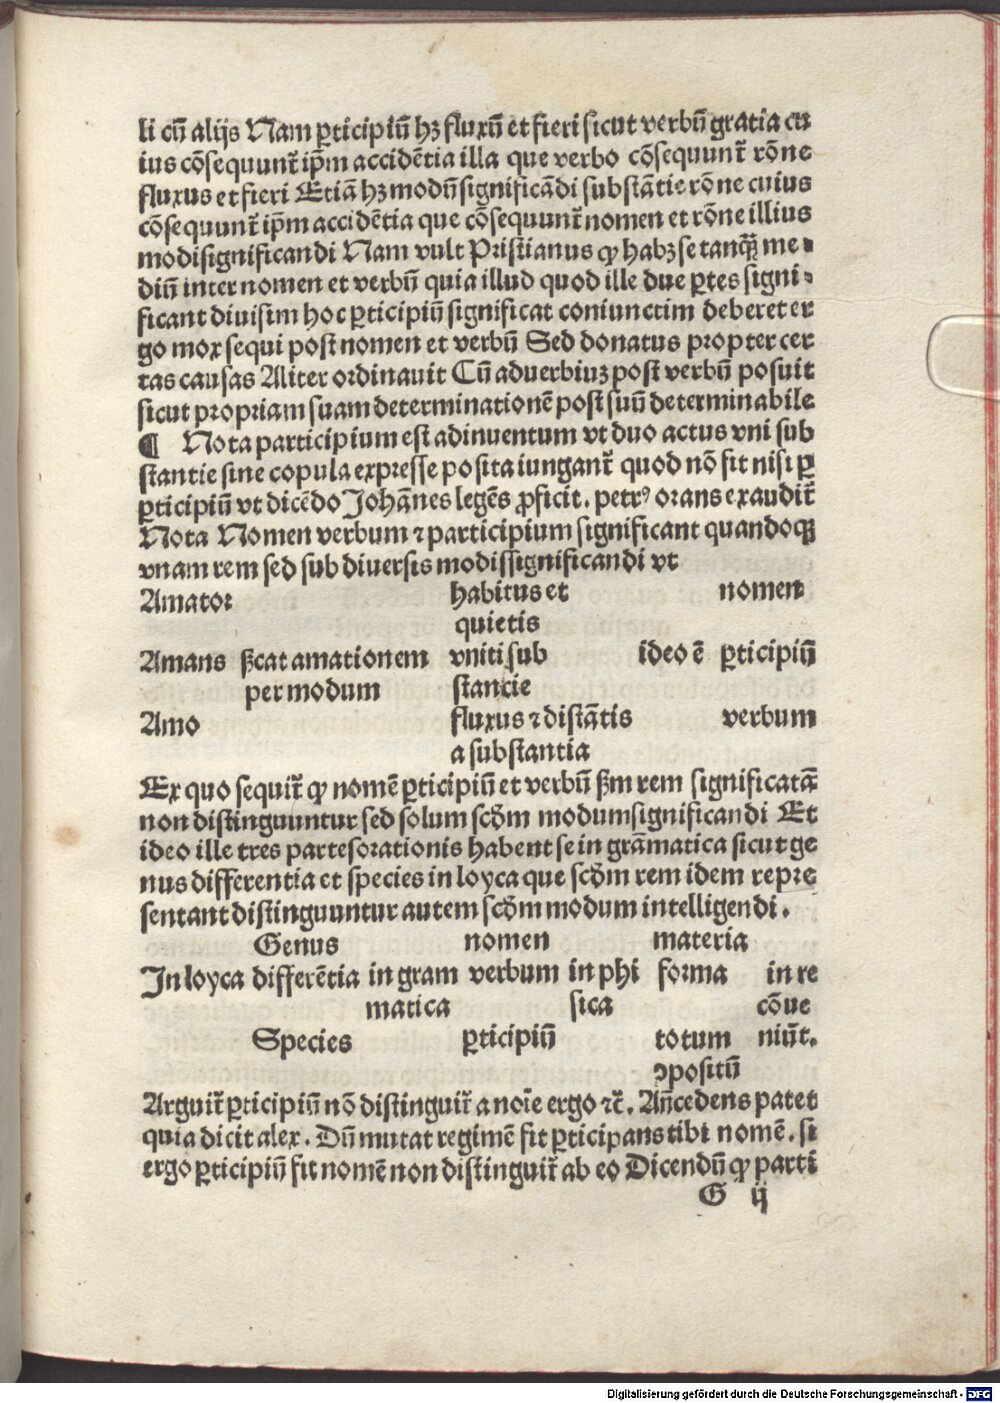 li cū alijs Nam ꝑticipiū hꝫ fluxū et fieri sicut verbū gratia cu
ius cōsequunt᷑ ip̄m accidētia illa que verbo cōsequunt᷑ rōne
fluxus et fieri Etiā hꝫ modū significādi substātie rōne cuius
cōsequunt᷑ ip̄m accidētia que cōsequunt᷑ nomen et rōne illius
modi significandi Nam vult Pristianus ꝙ habꝫ se tanqꝫ̄ me-
diū inter nomen et verbū quia illud quod ille due ꝑtes signi-
ficant divisim hoc ꝑticipiū significat coniunctim deberet er
go mox sequi post nomen et verbū Sed donatus propter cer
tas causas Aliter ordinauit Cū aduerbiuꝫ post verbū posuit
sicut propriam suam determinationē post suū determinabile
¶ Nota participium est adinuentum vt duo actus vni sub
stantie sine copula expresse posita iungant᷑ quod nō fit nisi ꝑ
ꝑticipiū vt dicēdo Johānes legēs ꝓficit. petrꝰ orans exaudit᷑
Nota Nomen verbum ⁊ participium significant quandoqꝫ
vnam rem sed sub diuersis modis significandi vt
Amator habitus et nomen
quietis
Amans ẞcat amationem vniti sub ideo ē ꝑticipiū
per modum stancie
Amo fluxus ⁊ distātis verbum
a substantia
Ex quo sequit᷑ ꝙ nomē ꝑticipiū et verbū ẞm rem significatā
non distinguuntur sed solum scd̄m modum significandi Et
ideo ille tres partes orationis habent se in grāmatica sicut ge
nus differentia et species in loyca que scd̄m rem idem repre
sentant distinguuntur autem scd̄m modum intelligendi.
Genus nomen materia
In loyca differētia in gram verbum in phi forma in re
matica sica cōue
Species ꝑticipiū totum niūt.
ↄpositū
Arguit᷑ ꝑticipiū nō distinguit᷑ a noīe ergo ⁊c̄. An̄cedens patet
quia dicit alex. Dū mutat regimē fit ꝑticipans tibi nomē. si
ergo ꝑticipiū fit nomē non distinguit᷑ ab eo Dicendū ꝙ parti
G ij
Digitalisierung gefördert durch die Deutsche Forschungsgemeinschaft - DFG